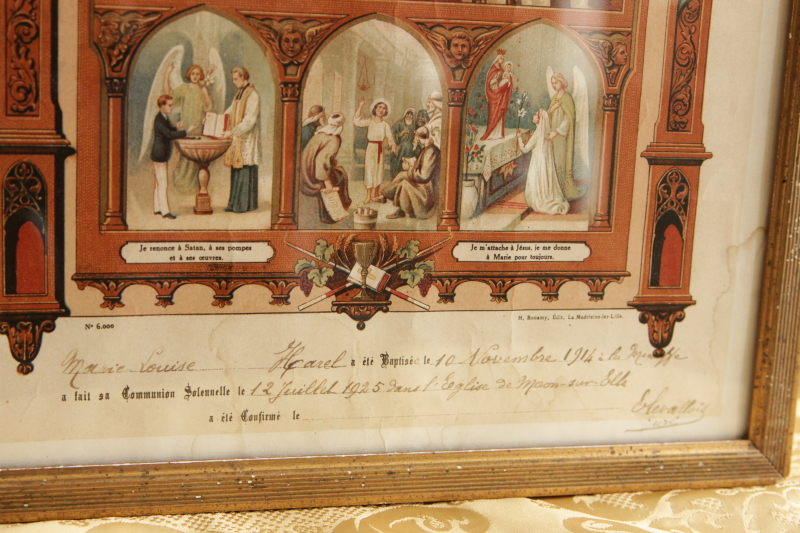 Je renonce à Satan, à ses pompes
et à ses œuvres.
Je m'attache à Jésus, je me donne
à Marie pour toujours.
N° 6.000
M. Bouasse, Édit. La Madeleine-lez-Lille.
Marie Louise Harel a été Baptisée le 10 Novembre 1914 à la Meauffe
a fait sa Communion Solennelle le 12 Juillet 1925 dans l'Eglise de Moon-sur-Elle
a été Confirmé le